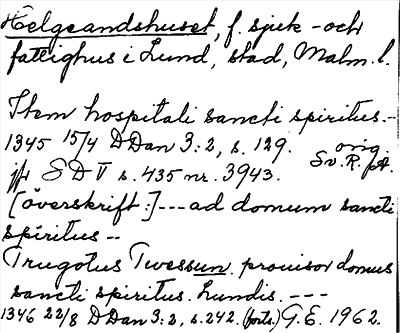 Helgeandshuset, f. sjuk- och
fattighus i Lund, stad, Malm. l.
Item hospitali sancti spiritus.--
1345 15/4 DDan 3:2, s. 129. orig.
jfr SD V s. 435 nr. 3943. Sv. R. pA.
[överskrift:] --- ad domum sancti
spiritus --
Trugotus Twessun. prouisor domus
sancti spiritus. Lundis. ---
1346 22/8 DDan 3:2, s. 242. (forts.) G.E. 1962.